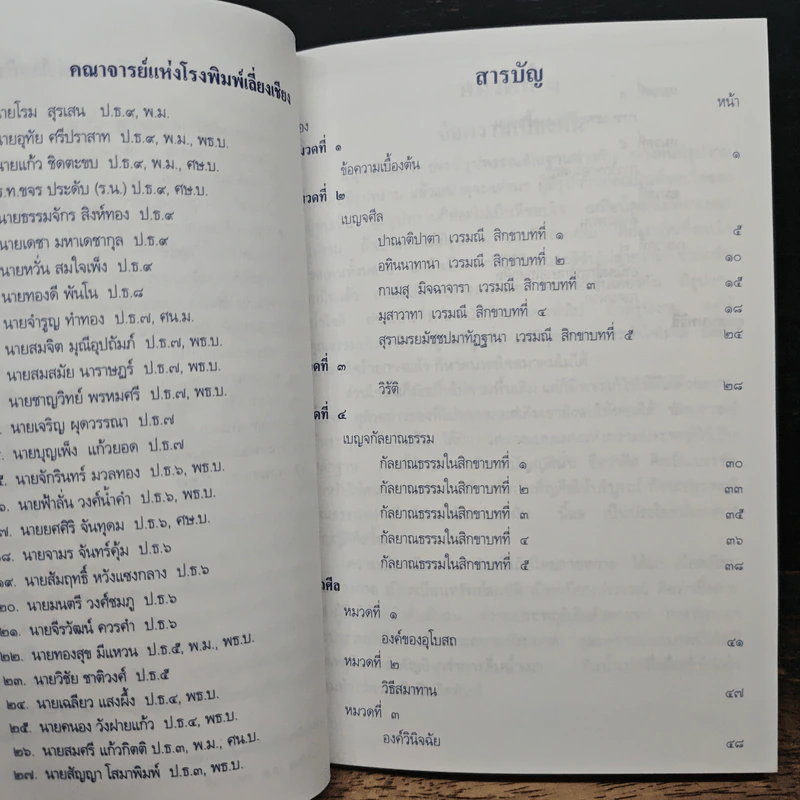 คณาจารย์แห่งโรงพิมพ์เลี่ยงเชียง
นายโรม สุรเสน ป.ธ.๙, พ.ม.
นายอุทัย ศรีปราสาท ป.ธ.๙, พ.ม., พธ.บ.
นายแก้ว ชิดตะขบ ป.ธ.๙, พ.ม., ศษ.บ.
ร.ท.ขจร ประดับ (ร.น.) ป.ธ.๙, ศษ.บ.
นายธรรมจักร สิงห์ทอง ป.ธ.๙
นายเดชา มหาเดชากุล ป.ธ.๙
นายหวั่น สมใจเพ็ง ป.ธ.๙
นายทองดี พันโน ป.ธ.๘
นายจำรูญ ทำทอง ป.ธ.๗, ศน.ม.
นายสมจิต มุณีอุปถัมภ์ ป.ธ.๗, พธ.บ.
นายสมสมัย นาราษฎร์ ป.ธ.๗, พธ.บ.
นายชาญวิทย์ พรหมศรี ป.ธ.๗, พธ.บ.
นายเจริญ ผุดวรรณา ป.ธ.๗
นายบุญเพ็ง แก้วยอด ป.ธ.๗
นายจักรินทร์ มวลทอง ป.ธ.๖, พธ.บ.
๖. นายฟ้าลั่น วงศ์น้ำคำ ป.ธ.๖, พธ.บ.
๗. นายยศศิริ จันทุดม ป.ธ.๖, ศษ.บ.
๑๘. นายจามร จันทร์คุ้ม ป.ธ.๖
๑๙. นายสัมฤทธิ์ หวังแซงกลาง ป.ธ.๖
๒๐. นายมนตรี วงศ์ชมภู ป.ธ.๖
๒๑. นายจีรวัฒน์ ควรคำ ป.ธ.๖
๒๒. นายทองสุข มีแหวน ป.ธ.๕, พ.ม., พธ.บ.
๒๓. นายวิชัย ชาติวงศ์ ป.ธ.๕
๒๔. นายเฉลียว แสงผึ้ง ป.ธ.๔, พธ.บ.
๒๕. นายคนอง วังฝายแก้ว ป.ธ.๔, พธ.บ.
๒๖. นายสมศรี แก้วกิตติ ป.ธ.๓, พ.ม., ศน.บ.
๒๗. นายสัญญา โสมาพิมพ์ ป.ธ.๓, พธ.บ.
สารบัญ
หน้า
หมวดที่ ๑
ข้อความเบื้องต้น ๑
ที่ ๒
เบญจศีล
ปาณาติปาตา เวรมณี สิกขาบทที่ ๑ ๕
อทินนาทานา เวรมณี สิกขาบทที่ ๒ ๑๐
กาเมสุ มิจฉาจารา เวรมณี สิกขาบทที่ ๓ ๑๕
มุสาวาทา เวรมณี สิกขาบทที่ ๔ ๑๘
สุราเมรยมัชชปมาทัฏฐานา เวรมณี สิกขาบทที่ ๕ ๒๔
ที่ ๓
วิรัติ ๒๘
ที่ ๔
เบญจกัลยาณธรรม
กัลยาณธรรมในสิกขาบทที่ ๑ ๓๐
กัลยาณธรรมในสิกขาบทที่ ๒ ๓๓
กัลยาณธรรมในสิกขาบทที่ ๓ ๓๕
กัลยาณธรรมในสิกขาบทที่ ๔ ๓๖
กัลยาณธรรมในสิกขาบทที่ ๕ ๓๘
ศีล
หมวดที่ ๑
องค์ของอุโบสถ ๔๑
หมวดที่ ๒
วิธีสมาทาน ๔๗
หมวดที่ ๓
องค์วินิจฉัย ๔๘